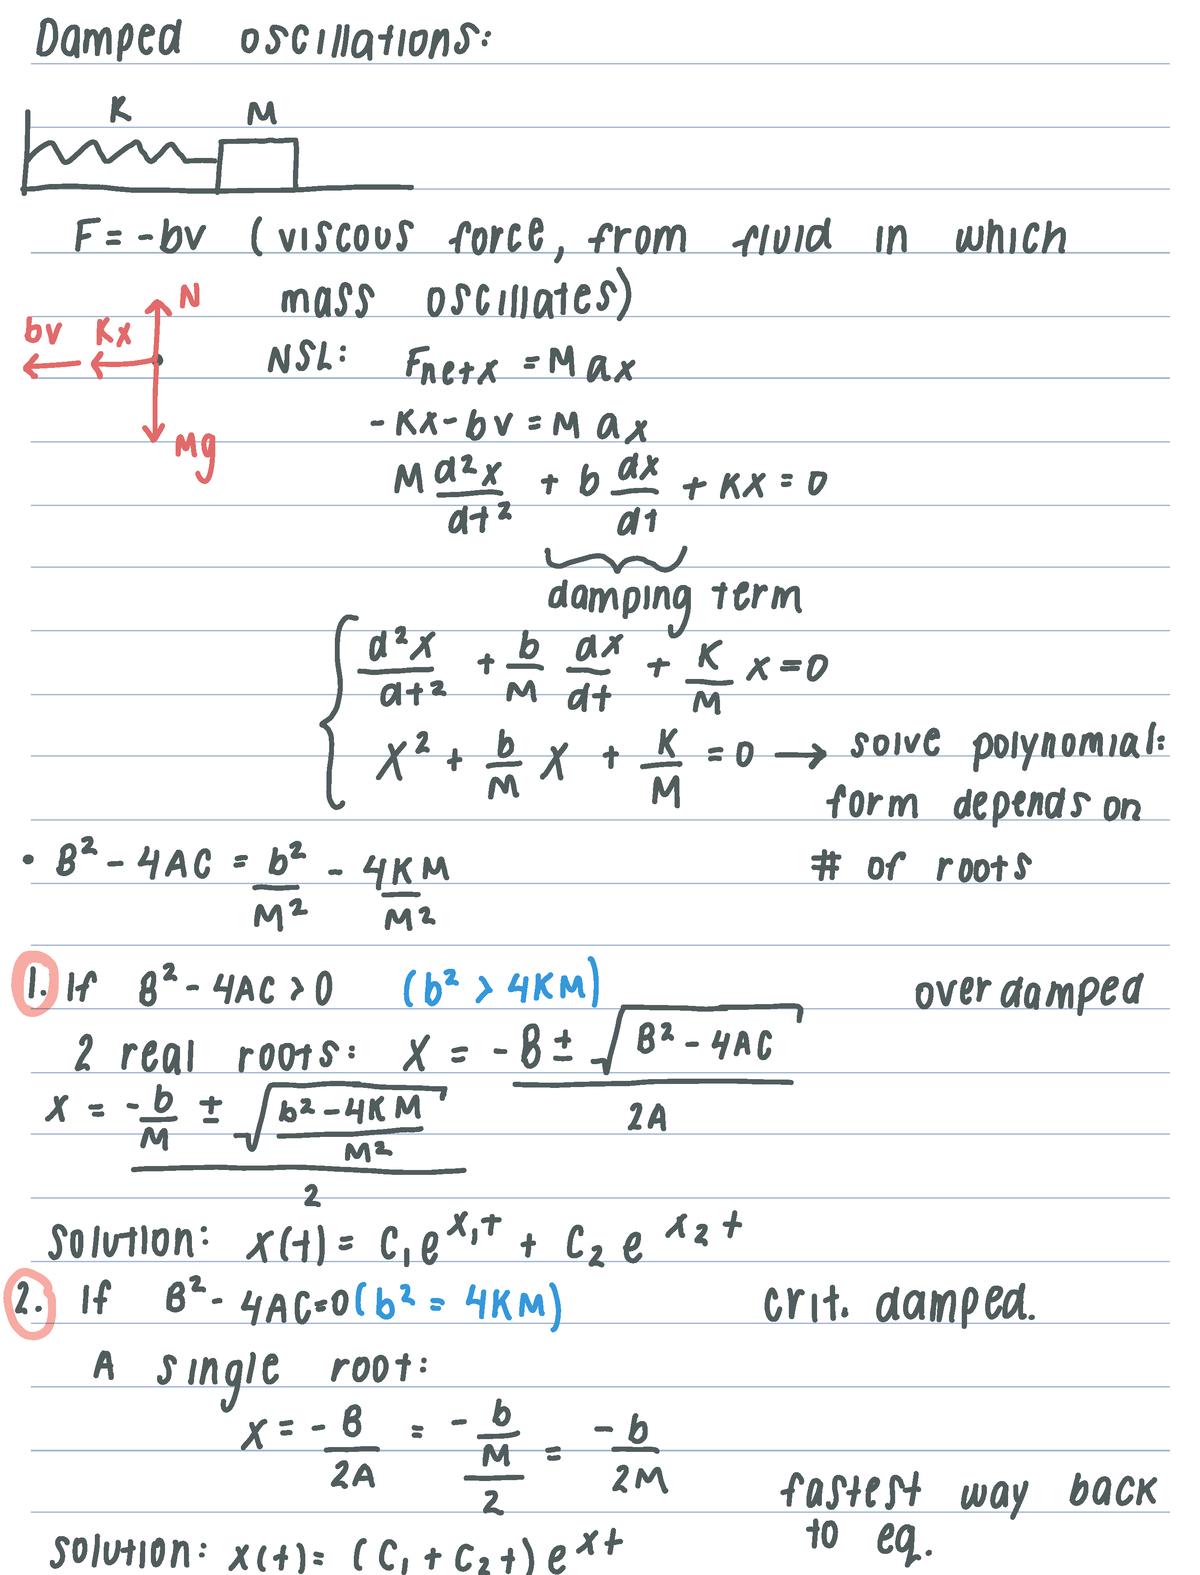 Damped oscillations:
K M
F = -bv (viscous force, from fluid in which
mass oscillates)
N
bv Kx
Mg
NSL: Fnetx = M ax
-Kx - bv = M ax
M d²x/dt² + b dx/dt + Kx = 0
damping term
d²x/dt² + b/M dx/dt + K/M x = 0
X² + b/M X + K/M = 0 → solve polynomial:
form depends on
# of roots
• B² - 4AC = b²/M² - 4KM/M²
1. If B² - 4AC > 0 (b² > 4KM) overdamped
2 real roots: X = -B ± √(B² - 4AC) / 2A
X = -b/M ± √((b² - 4KM)/M²) / 2
Solution: x(t) = C₁e^(x₁t) + C₂e^(x₂t)
2. If B² - 4AC = 0 (b² = 4KM) crit. damped.
A single root:
X = -B/2A = -b/M/2 = -b/2M
fastest way back
to eq.
Solution: x(t) = (C₁ + C₂t)e^(xt)